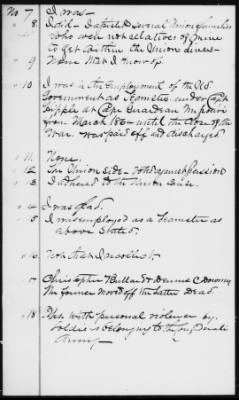 No 7 I was —
8. I did - I aided several Union families
who were not relatives of mine
to get within the Union lines —
9 None that I know of
10 I was in the Employment of the U.S.
Government as Teamster under Capt
Ripple at Cape Girardeau Missouri
from March 186 - until the close of the
War. Was paid off and discharged
11. None.
12 The Union side - Voted against secession
13 I adhered to the Union Cause.
14 I was glad.
15 I was employed as a teamster as
above stated.
16 Not that I recollect.
17 Christopher Bullard & Dennis C Downey
the former moved off the latter Dead.
18 Yes, with personal violence by
soldiers belonging to the Confederate
Army —